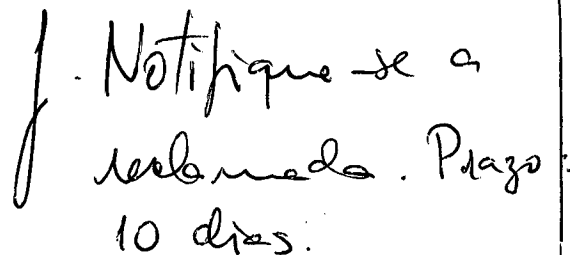 J. Notifique-se a
reclamada. Prazo:
10 dias.